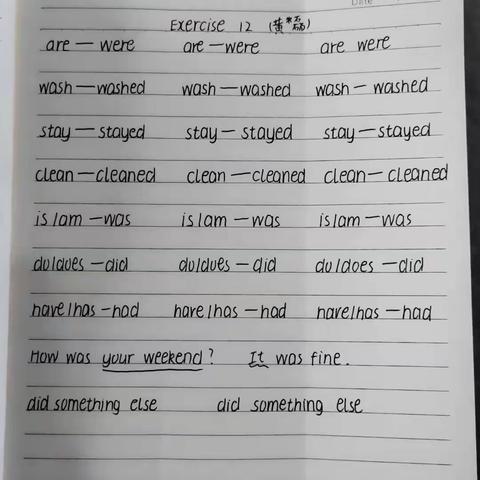 Date
Exercise 12 (黄
are — were are — were are were
wash — washed wash — washed wash — washed
stay — stayed stay — stayed stay — stayed
clean — cleaned clean — cleaned clean — cleaned
is/am — was is/am — was is/am — was
do/does — did do/does — did do/does — did
have/has — had have/has — had have/has — had
How was your weekend? It was fine.
did something else did something else